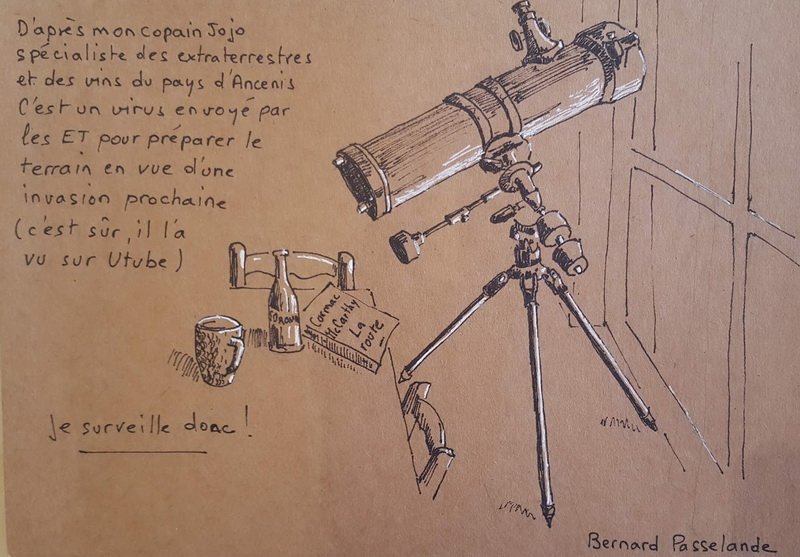 D'après mon copain Jojo
spécialiste des extraterrestres
et des vins du pays d'Ancenis
C'est un virus envoyé par
les ET pour préparer le
terrain en vue d'une
invasion prochaine
(c'est sûr, il l'a
vu sur Utube)
Cormac
McCarthy
La
route
Je surveille donc !
Bernard Passelande